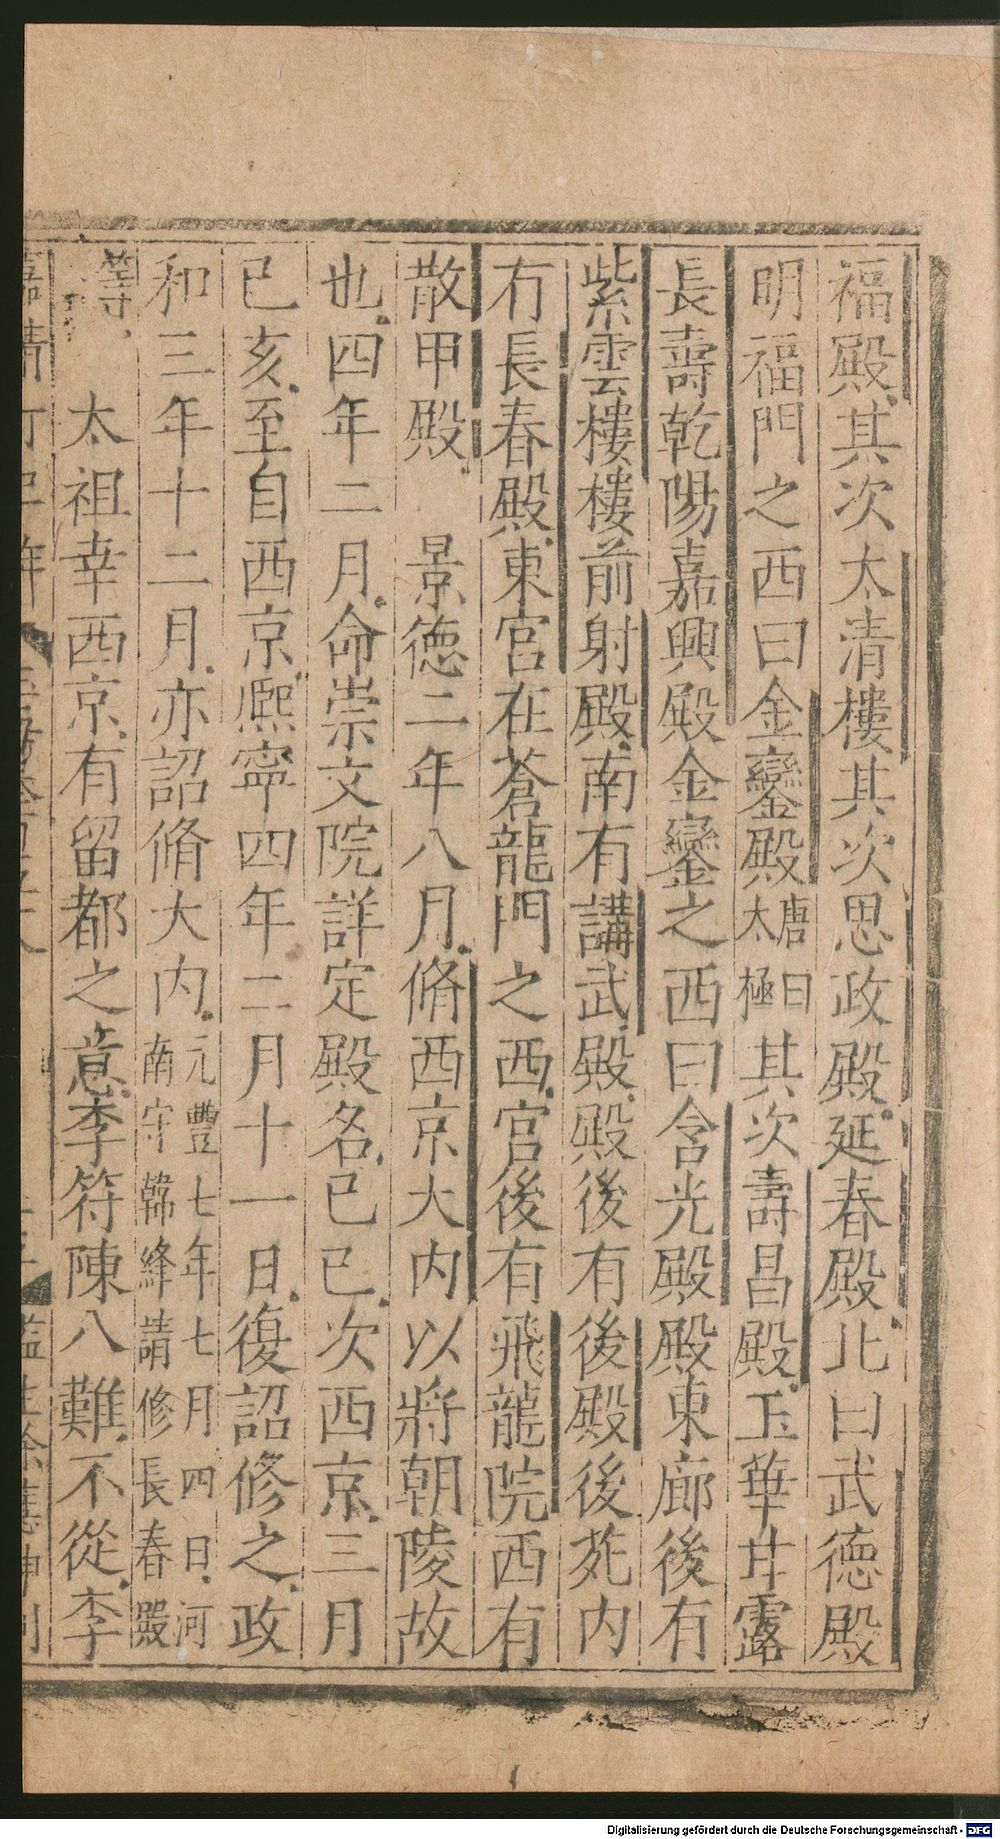 福殿其次太清樓其次思政殿延春殿北曰武德殿
明福門之西曰金鑾殿唐曰太極其次壽昌殿玉華甘露
長壽乾陽嘉興殿金鑾之西曰含光殿殿東廊後有
紫雲樓樓前射殿南有講武殿殿後有後殿後苑内
有長春殿東宫在蒼龍門之西宫後有飛龍院西有
散甲殿　景徳二年八月脩西京大内以將朝陵故
也四年二月命崇文院詳定殿名己巳次西京三月
己亥至自西京熈寧四年二月十一日復詔修之政
和三年十二月亦詔脩大内元豐七年七月四日河南守韓絳請修長春殿
等　太祖幸西京有留都之意李符陳八難不從李
Digitalisierung gefördert durch die Deutsche Forschungsgemeinschaft - DFG